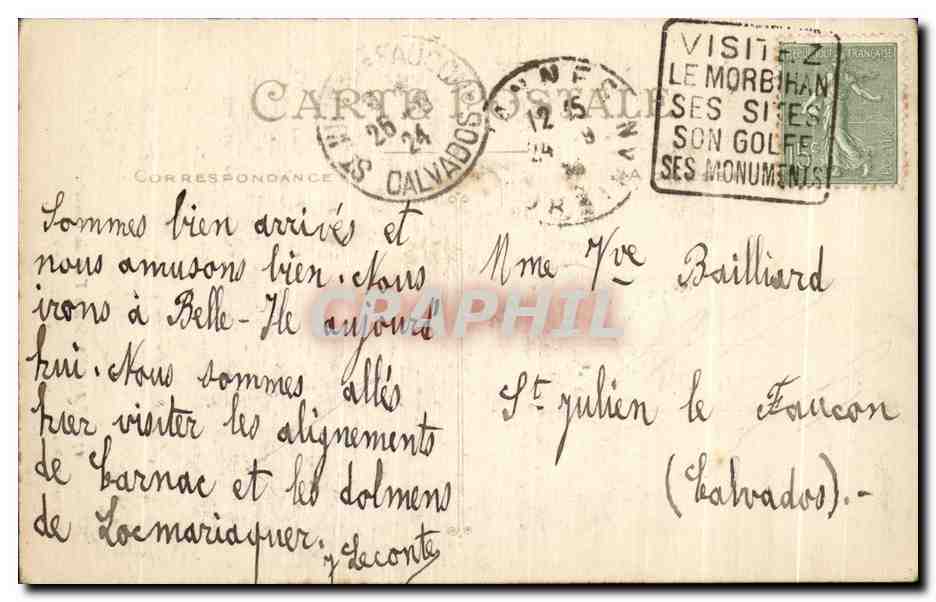 CARTE POSTALE
CORRESPONDANCE
VISITEZ
LE MORBIHAN
SES SITES
SON GOLFE
SES MONUMENTS
REPUBLIQUE FRANÇAISE
15c
26
24
CALVADOS
12 15
24
9
Sommes bien arrivés et
nous amusons bien. Nous
irons à Belle-Ile aujourd
hui. Nous sommes allés
hier visiter les alignements
de Carnac et les dolmens
de Locmariaquer.
Leconte
Mme Vve Bailliard
St Julien le Faucon
(Calvados).-
CRAPHIL